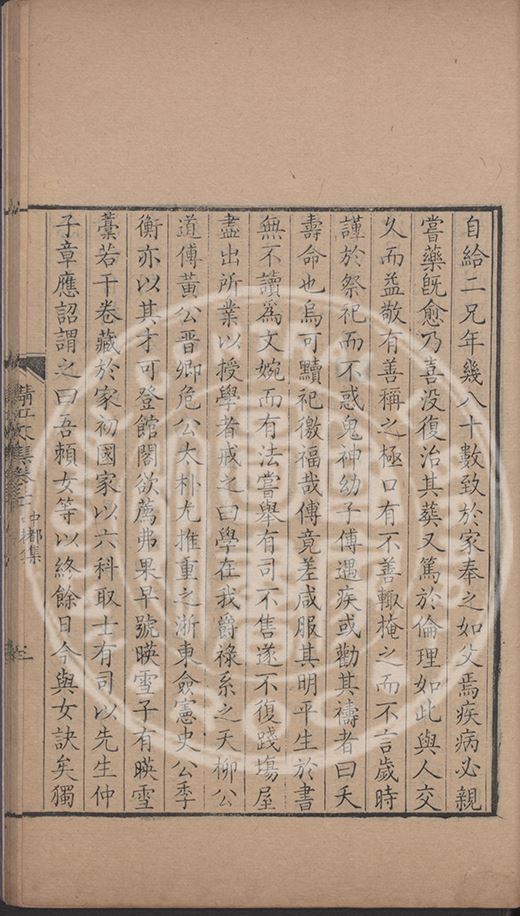 自給二兄年幾八十數致於家奉之如父焉疾病必親
嘗藥既愈乃喜没復治其葬又篤於倫理如此與人交
久而益敬有善稱之極口有不善輙掩之而不言歲時
謹於祭祀而不惑鬼神幼子傅遇疾或勸其禱者曰夭
壽命也烏可黷祀徼福哉傅竟差咸服其明平生於書
無不讀爲文婉而有法嘗舉有司不售遂不復踐塲屋
盡出所業以授學者戒之曰學在我爵祿系之天柳公
道傅黃公晉卿危公太朴尤推重之浙東僉憲史公季
衡亦以其才可登館閣欲薦弗果早號暎雪子有暎雪
藁若干卷藏於家初國家以六科取士有司以先生仲
子章應詔謂之曰吾頼女等以終餘日今與女訣矣獨
清江文集卷十
中都集